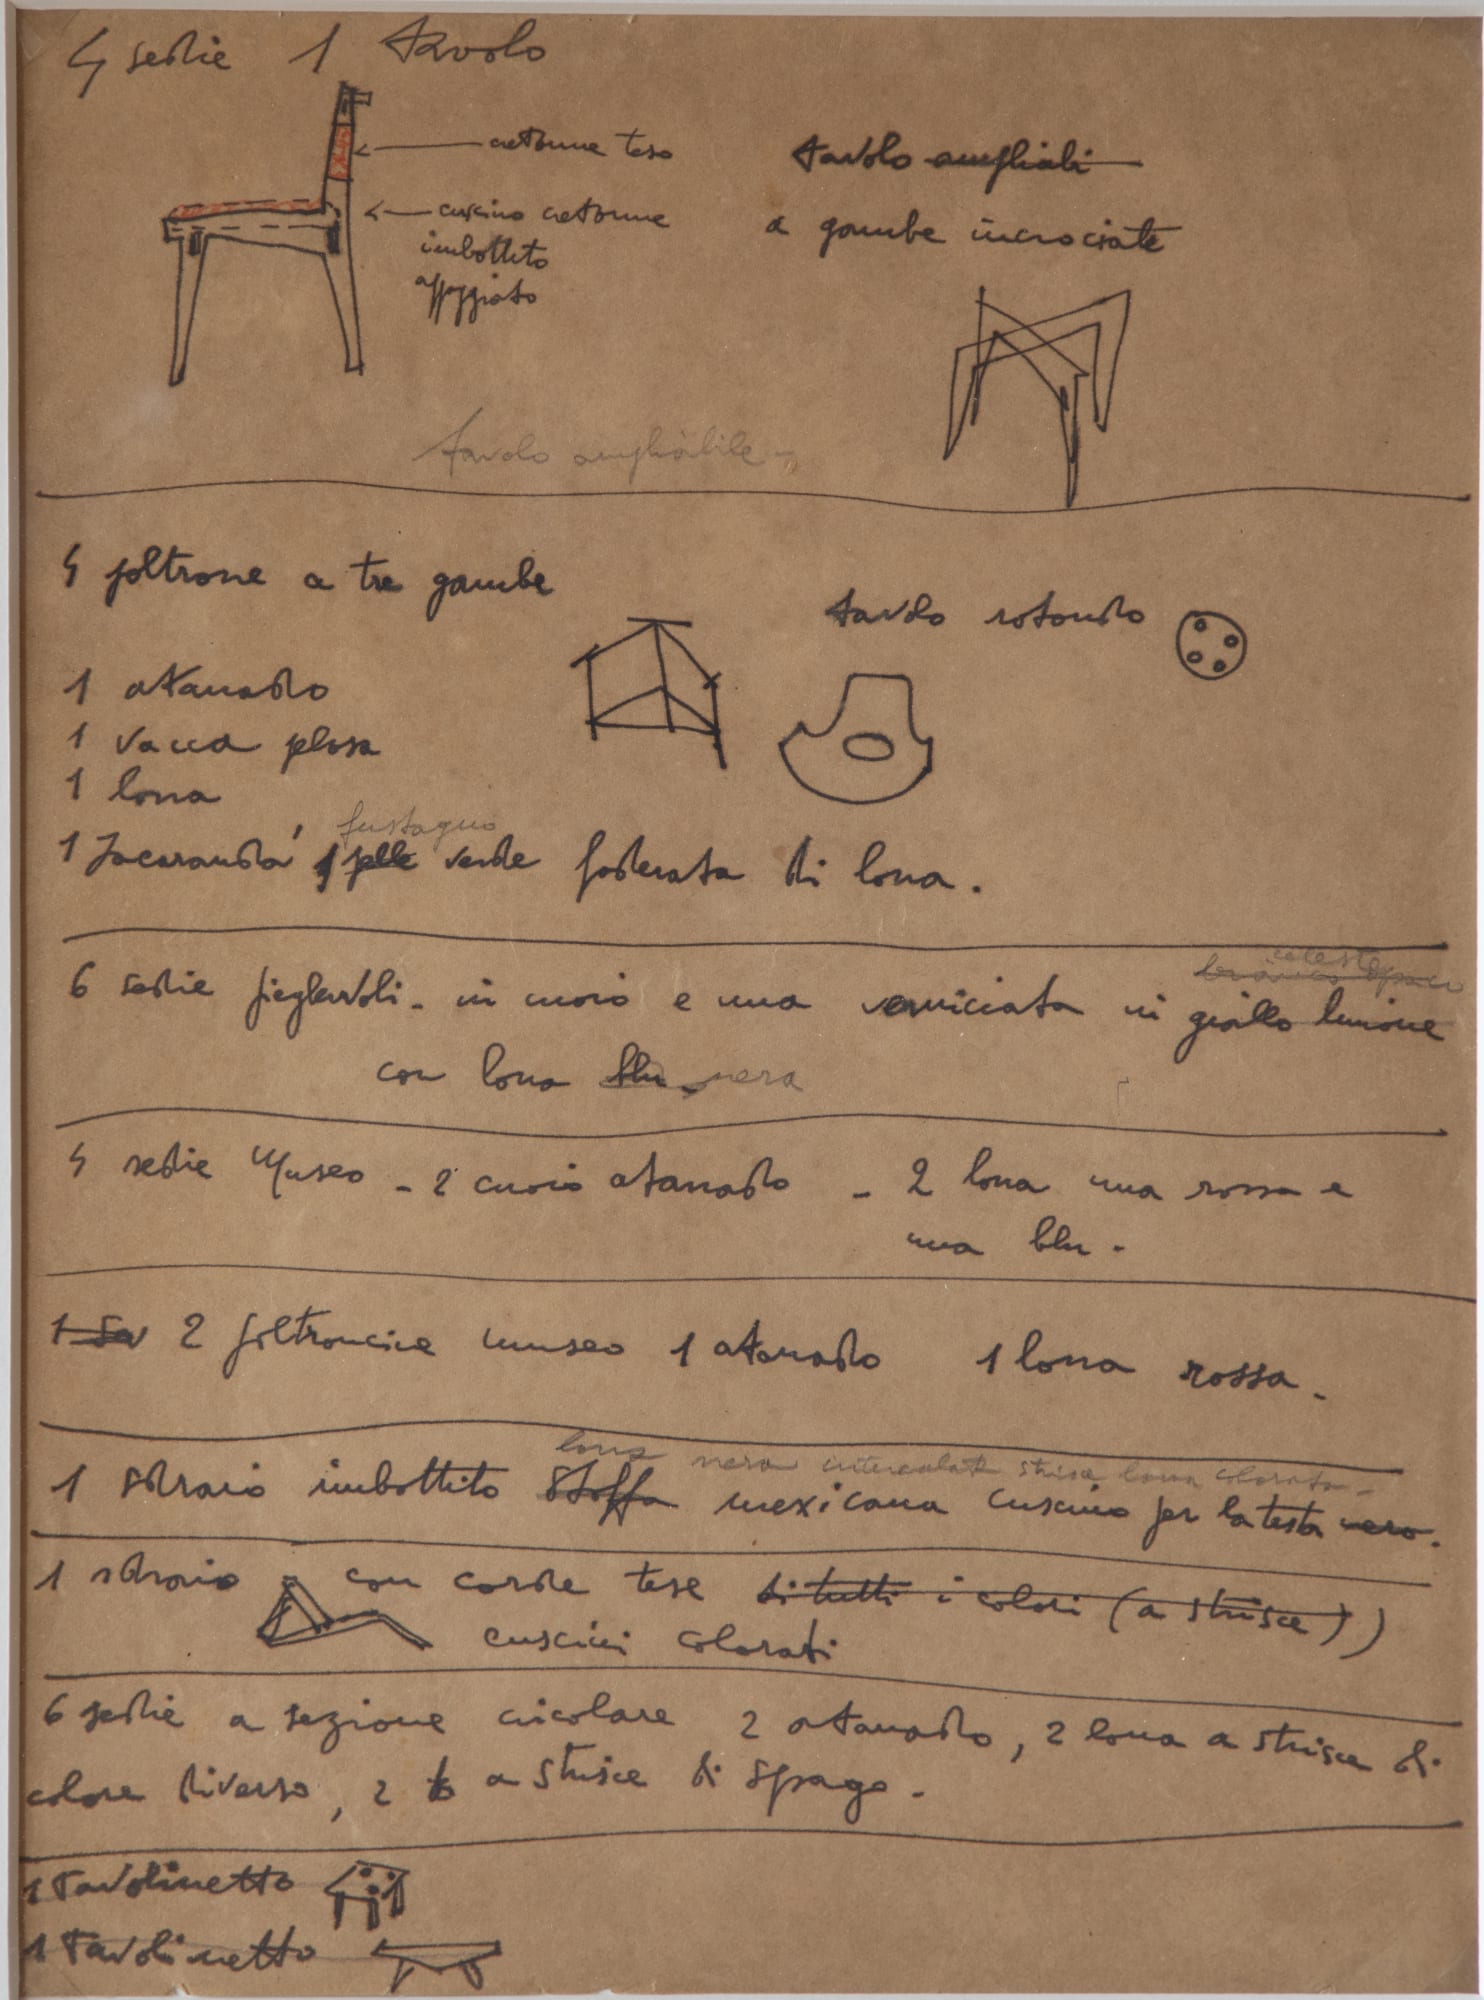 4 sedie 1 tavolo
cretonne teso
cuscino cretonne
imbottito
appoggiato
tavolo ampliabi
a gambe incrociate
tavolo ampliabile -
4 poltrone a tre gambe
tavolo rotondo
1 atanado
1 vacca pelosa
1 lona
fustagno
1 Jacarandà, 1 pelle verde foderata di lona.
celeste opaco
6 sedie pieghevoli - in cuoio e una verniciata in giallo limone
con lona blu - nera
4 sedie Museo - 2 cuoio atanado - 2 lona una rossa e
una blu -
1 2 poltroncine museo 1 atanado 1 lona rossa -
lona nera intercalata strisce lona colorata -
1 sdraio imbottito stoffa mexicana cuscino per la testa nero.
1 sdraio con corde tese di tutti i colori (a strisce))
cuscini colorati
6 sedie a sezione circolare 2 atanado, 2 lona a strisce di
colore diverso, 2 a strisce di spago -
1 tavolinetto
1 tavolinetto